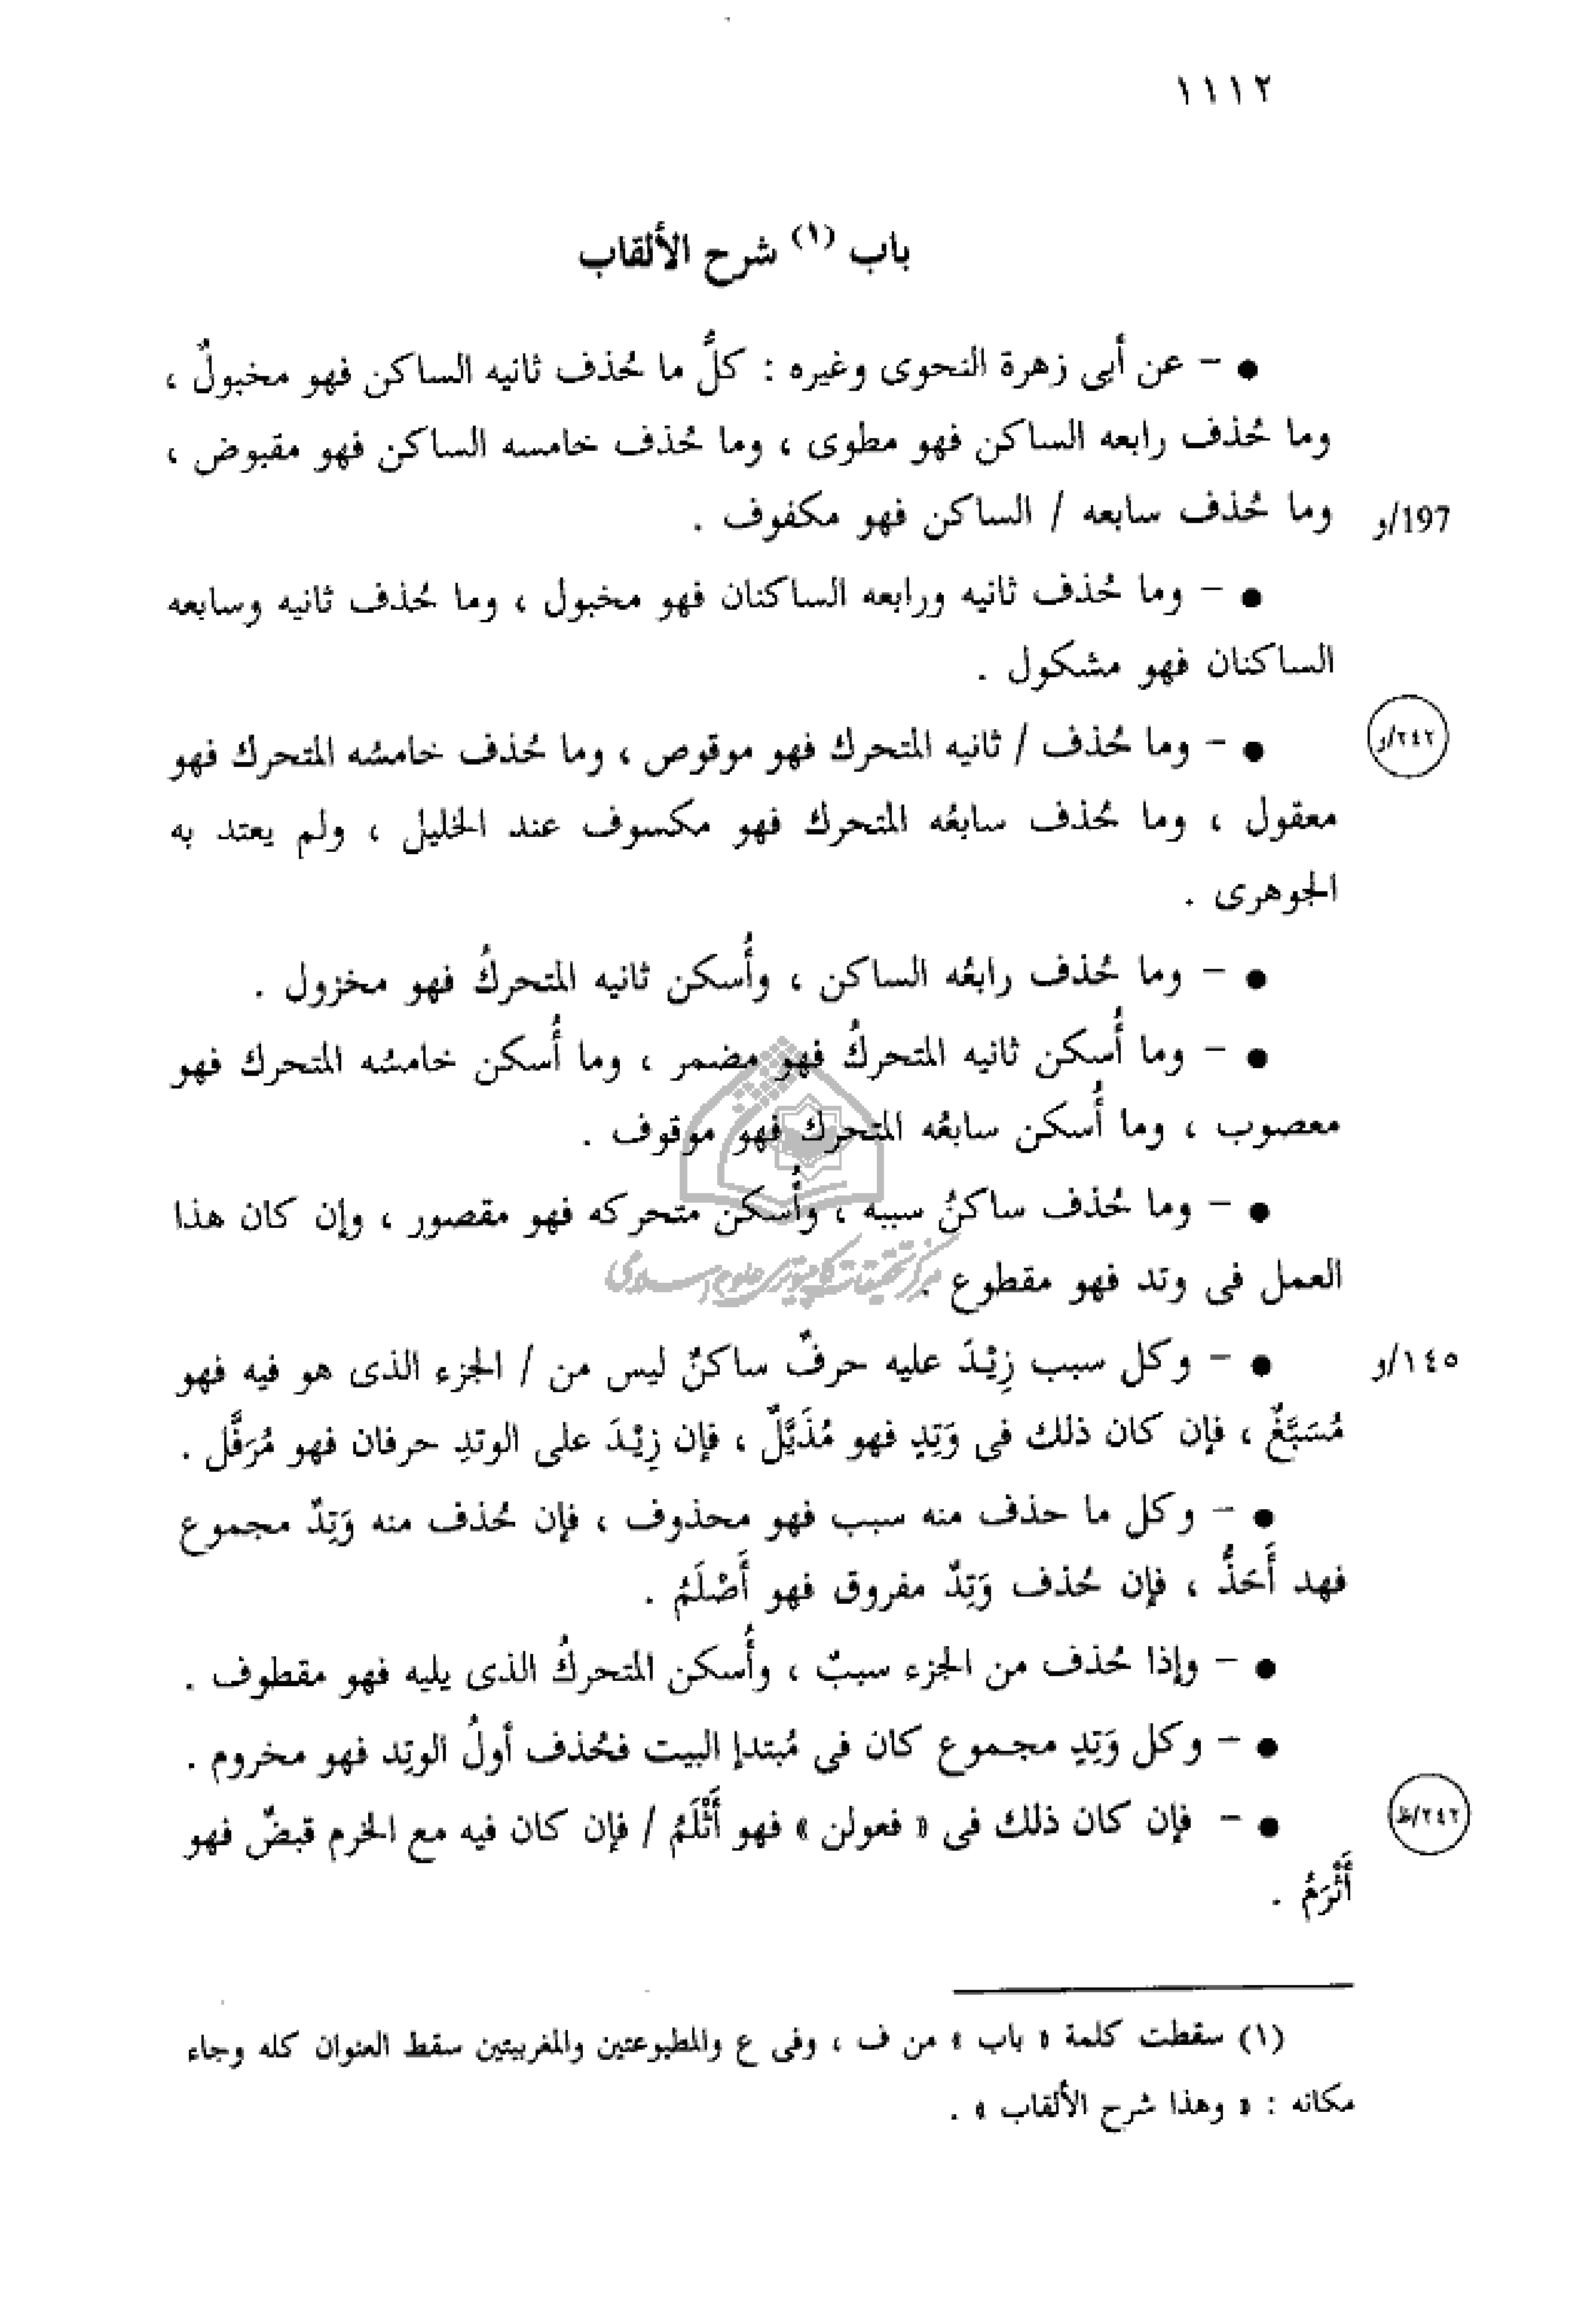 ١١١٢
باب (١) شرح الألقاب
● – عن أبى زهرة النحوى وغيره : كلُّ ما حُذف ثانيه الساكن فهو مخبولٌ ،
وما حُذف رابعه الساكن فهو مطوى ، وما حُذف خامسه الساكن فهو مقبوض ،
وما حُذف سابعه / الساكن فهو مكفوف . 197/و
● – وما حُذف ثانيه ورابعه الساكنان فهو مخبول ، وما حُذف ثانيه وسابعه
الساكنان فهو مشكول .
● – وما حُذف / ثانيه المتحرك فهو موقوص ، وما حُذف خامسُه المتحرك فهو ٢٤٢/و
معقول ، وما حُذف سابعُه المتحرك فهو مكسوف عند الخليل ، ولم يعتد به
الجوهرى .
● – وما حُذف رابعُه الساكن ، وأُسكن ثانيه المتحركُ فهو مخزول .
● – وما أُسكن ثانيه المتحركُ فهو مضمر ، وما أُسكن خامسُه المتحرك فهو
معصوب ، وما أُسكن سابعُه المتحرك فهو موقوف .
● – وما حُذف ساكنُ سببه ، وأُسكن متحركه فهو مقصور ، وإن كان هذا
العمل فى وتد فهو مقطوع .
مركز تحقيقات كامپيوترى علوم اسلامى
● – وكل سبب زِيْدَ عليه حرفٌ ساكنٌ ليس من / الجزء الذى هو فيه فهو ١٤٥/و
مُسَبَّغٌ ، فإن كان ذلك فى وَتِدٍ فهو مُذَيَّلٌ ، فإن زِيْدَ على الوتدِ حرفان فهو مُرَفَّل .
● – وكل ما حذف منه سبب فهو محذوف ، فإن حُذف منه وَتِدٌ مجموع
فهد أَحَذُّ ، فإن حُذف وَتِدٌ مفروق فهو أَصْلَمُ .
● – وإذا حُذف من الجزء سببٌ ، وأُسكن المتحركُ الذى يليه فهو مقطوف .
● – وكل وَتِدٍ مجموع كان فى مُبتدإ البيت فحُذف أولُ الوتِد فهو مخروم .
● – فإن كان ذلك فى « فعولن » فهو أَثْلَمُ / فإن كان فيه مع الخرم قبضٌ فهو ٢٤٢/ظ
أَثْرَمُ .
(١) سقطت كلمة « باب » من ف ، وفى ع والمطبوعتين والمغربيتين سقط العنوان كله وجاء
مكانه : « وهذا شرح الألقاب » .